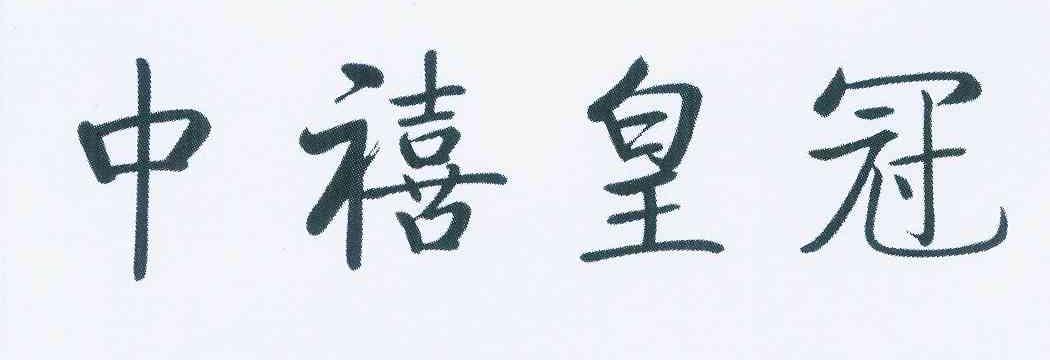 中禧皇冠